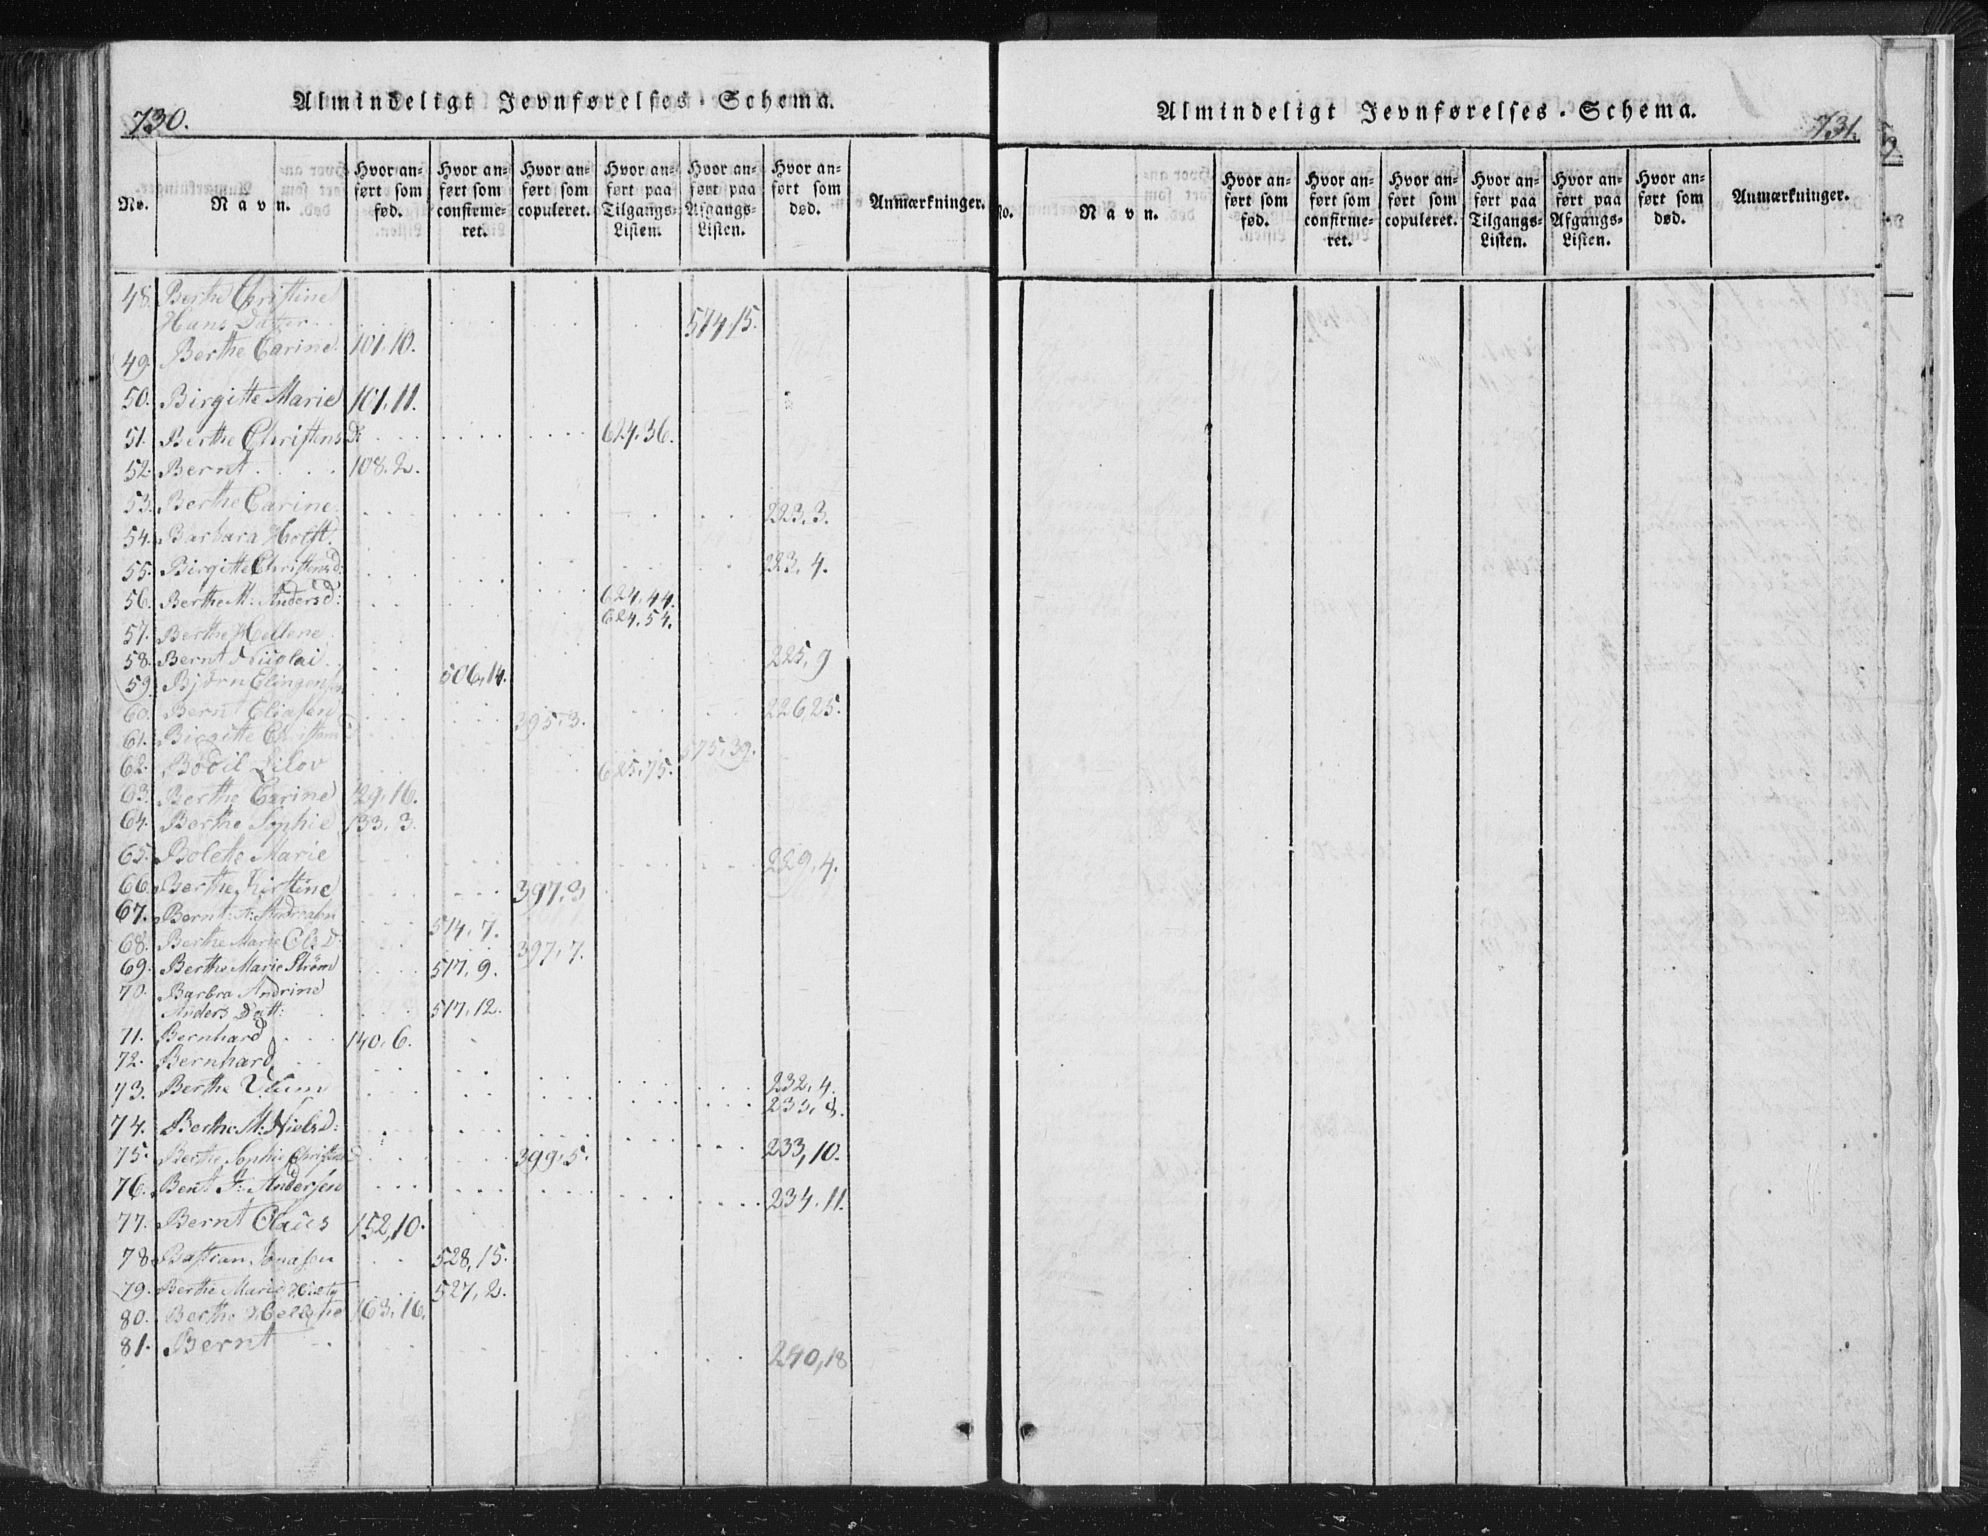 730.
Almindeligt Jevnførelses-Schema.
No. Navn. Hvor anført som fød. Hvor anført som confirmeret. Hvor anført som copuleret. Hvor anført paa Tilgangs-Listen. Hvor anført paa Afgangs-Listen. Hvor anført som død. Anmærkninger.
48. Berthe Christine
Hans Datter 574,15.
49. Berthe Carine 101,10.
50. Birgitte Marie 101,11.
51. Berthe Christens D: 624,36.
52. Bernt 108.2.
53. Berthe Carine 223,3.
54. Barbara
55. Birgitte Christensd: 223,4.
56. Berthe M: Andersd: 624,44.
57. Berthe Hellene 624,54.
58. Bernt Nicolai 225,9
59. Bjørn 506,14.
60. Bernt Eliasen 226,25.
61. Birgitte 395,3.
62. Bodil Lilov 625,75. 575,39.
63. Berthe Carine 129,16.
64. Berthe Sophie 133,3.
65. Bolette Marie 229,4.
66. Berthe Kirstine 397,3
67. Bernt A: 514,7.
68. Berthe Marie Ols D: 397,7.
69. Berthe Marie Strøm 517,9.
70. Barbra Andrine
Anders Datt: 517,12.
71. Bernhard 140,6.
72. Bernhard 232,4.
73. Berthe 233,8.
74. Berthe M: Nielsd: 233,10.
75. Berthe Sophie 399,5.
76. Bent Andersen 234.11.
77. Bernt Claus 152,10.
78. Bastian Jonasen 528,15.
79. Berthe Marie 527,2.
80. Berthe Hellene 163,16.
81. Bernt 240,18
Almindeligt Jevnførelses-Schema.
731.
No. Navn. Hvor anført som fød. Hvor anført som confirmeret. Hvor anført som copuleret. Hvor anført paa Tilgangs-Listen. Hvor anført paa Afgangs-Listen. Hvor anført som død. Anmærkninger.